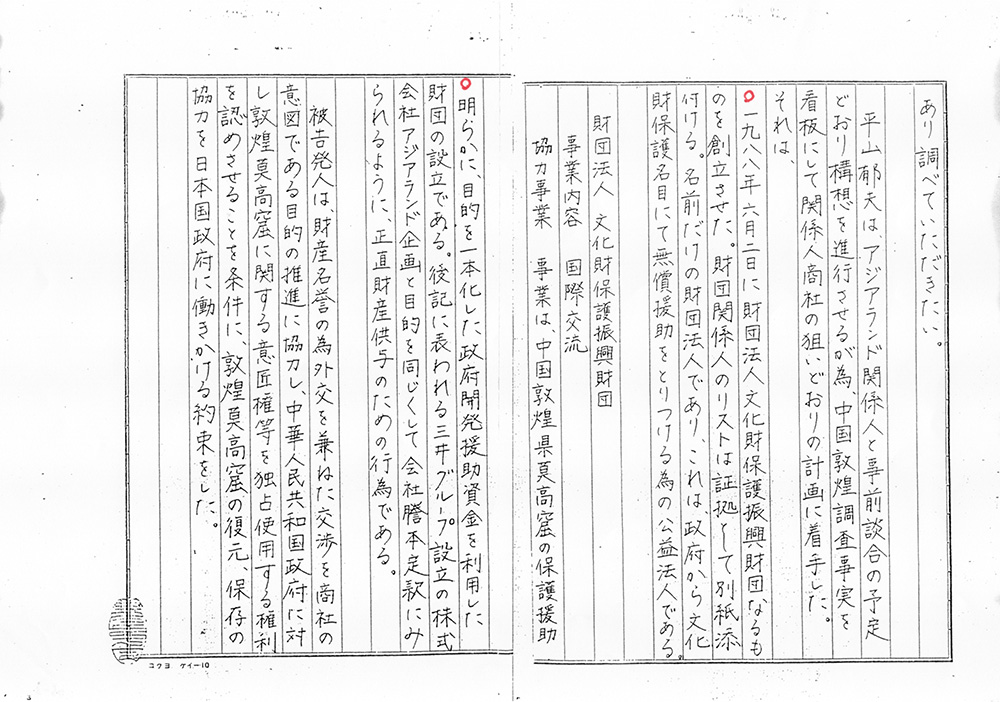 あり調べていただきたい。
平山郁夫は、アジアランド関係人と事前談合の予定
どおり構想を進行させるが為、中国敦煌調査事実を
看板にして関係人商社の狙いどおりの計画に着手した。
それは、
一九八八年六月二日に財団法人文化財保護振興財団なるも
のを創立させた。財団関係人のリストは証拠として別紙添
付ける。名前だけの財団法人であり、これは、政府から文化
財保護名目にて無償援助をとりつける為の公益法人である。
財団法人 文化財保護振興財団
事業内容 国際交流
協力事業 事業は、中国敦煌県莫高窟の保護援助
明らかに、目的を一本化した政府開発援助資金を利用した
財団の設立である。後記に表われる三井グループ設立の株式
会社アジアランド企画と目的を同じくして会社謄本定款にみ
られるように、正直財産供与のための行為である。
被告発人は、財産名誉の為外交を兼ねた交渉を商社の
意図である目的の推進に協力し、中華人民共和国政府に対
し敦煌莫高窟に関する意匠権等を独占使用する権利
を認めさせることを条件に、敦煌莫高窟の復元、保存の
協力を日本国政府に働きかける約束をした。
コクヨ ケイー10